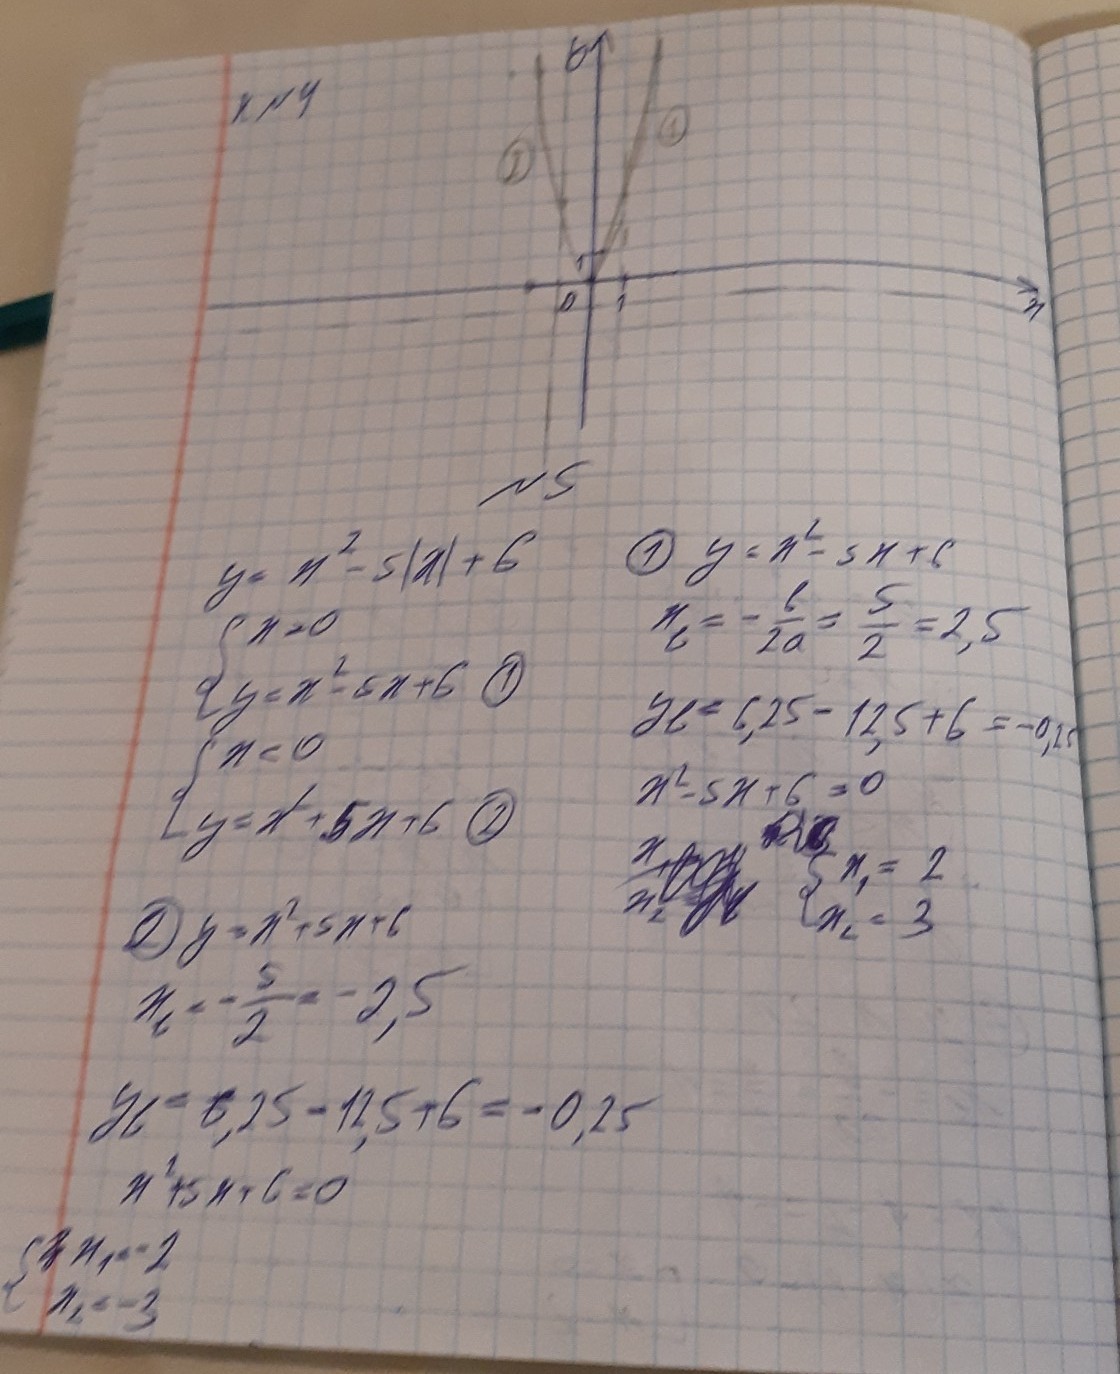 к №4
y
②
①
1
0
1
x
№5
y = x² - 5|x| + 6
{ x ≥ 0
{ y = x² - 5x + 6 ①
{ x < 0
{ y = x² + 5x + 6 ②
① y = x² - 5x + 6
xв = - b/2a = 5/2 = 2,5
yв = 6,25 - 12,5 + 6 = -0,25
x² - 5x + 6 = 0
{ x₁ = 2
{ x₂ = 3
② y = x² + 5x + 6
xв = - 5/2 = - 2,5
yв = 6,25 - 12,5 + 6 = - 0,25
x² + 5x + 6 = 0
{ x₁ = -2
{ x₂ = -3